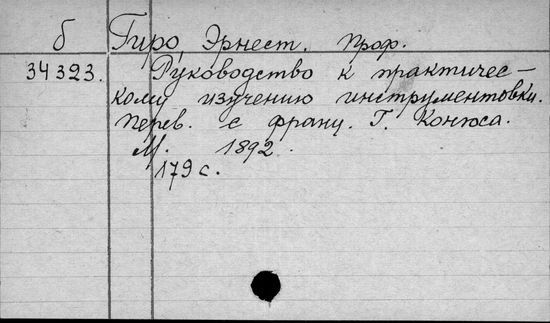 б Гиро, Эрнест. Проф.
34323. Руководство к практичес-
кому изучению инструментовки.
Перев. с франц. Г. Конюса.
М. 1892.
179 с.